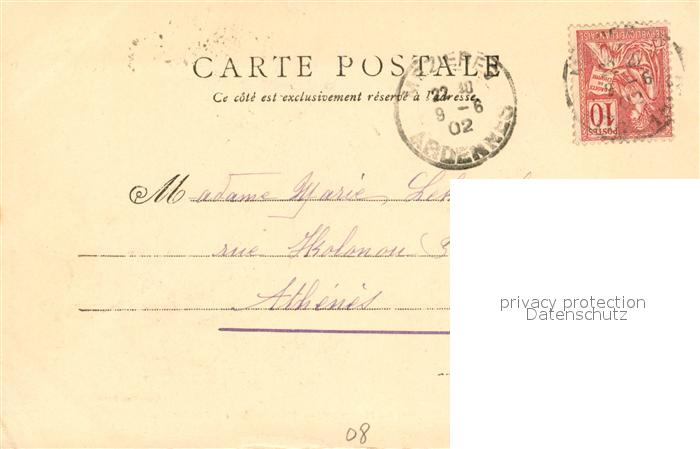 CARTE POSTALE
Ce côté est exclusivement réservé à l'adresse
MEZIERES
22 30
9 - 6
02
ARDENNES
RÉPUBLIQUE FRANÇAISE
10
POSTES
Madame Marie
rue Kolonou
Athénés
privacy protection
Datenschutz
08